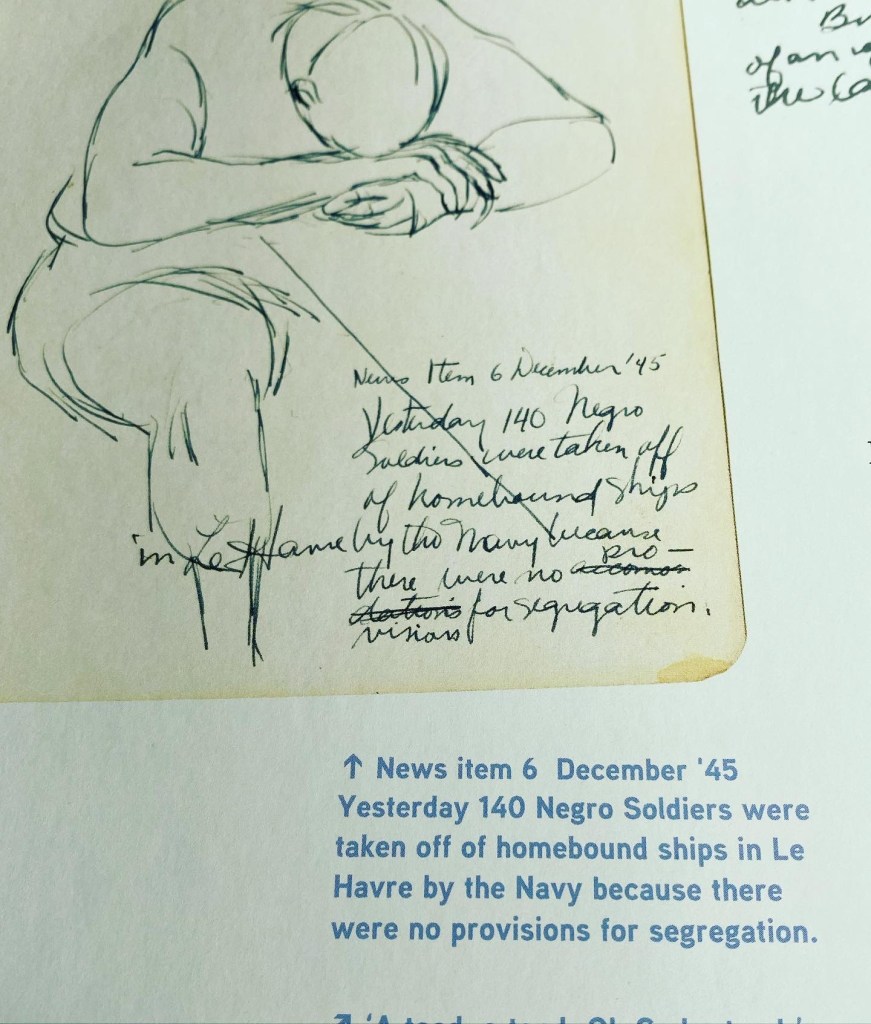 Bu
of an
the Ca
News Item 6 December '45
Yesterday 140 Negro
Soldiers were taken off
of homebound ships
in Le Havre by the Navy because
pro-
there were no accomo-
dations for segregation.
visions
↑ News item 6 December '45
Yesterday 140 Negro Soldiers were
taken off of homebound ships in Le
Havre by the Navy because there
were no provisions for segregation.